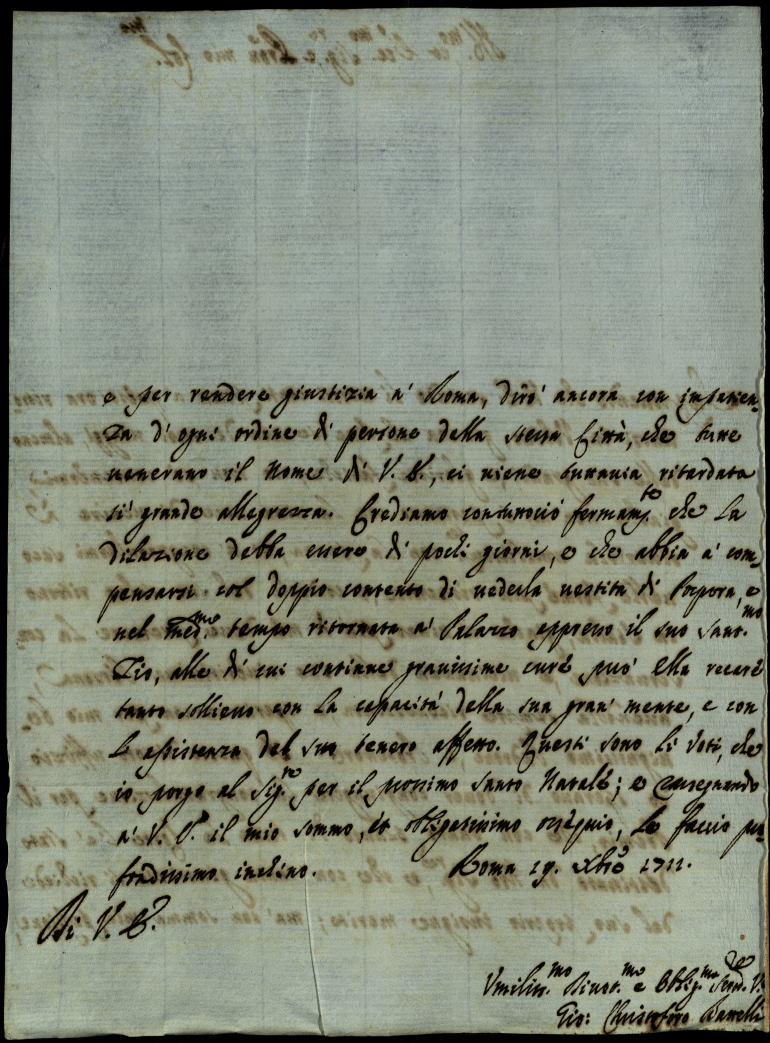 e per rendere giustizia a' Roma, dirò ancora con impazien-
za d' ogni ordine di persone della stessa Città, che tutte
uenerano il Nome di V. E., ci uiene tuttauia ritardata
si' grande allegrezza. Crediamo contuttociò fermam.te che la
dilazione debba essere di pochi giorni, e che abbia a' com-
pensarsi col doppio contento di uederla uestita di Porpora, e
nel med.mo tempo ritornata a' Palazzo appresso il suo Sant.mo
Zio, alle di cui continue grauissime curé può Ella recaré
tanto sollieuo con la capacità della sua gran' mente, e con
l' assistenza del suo tenero affetto. Questi sono li Voti, che
io porgo al Sig.re per il prossimo Santo Natalé; e rassegnando
a' V. E. il mio sommo, et obligatissimo ossequio, le faccio pro-
fondissimo inchino. Roma 19. Xbré 1711.
Di V. E.
Vmiliss.mo Diuot.mo e Obblig.mo Seru.re V.
Gio: Christoforo Battelli